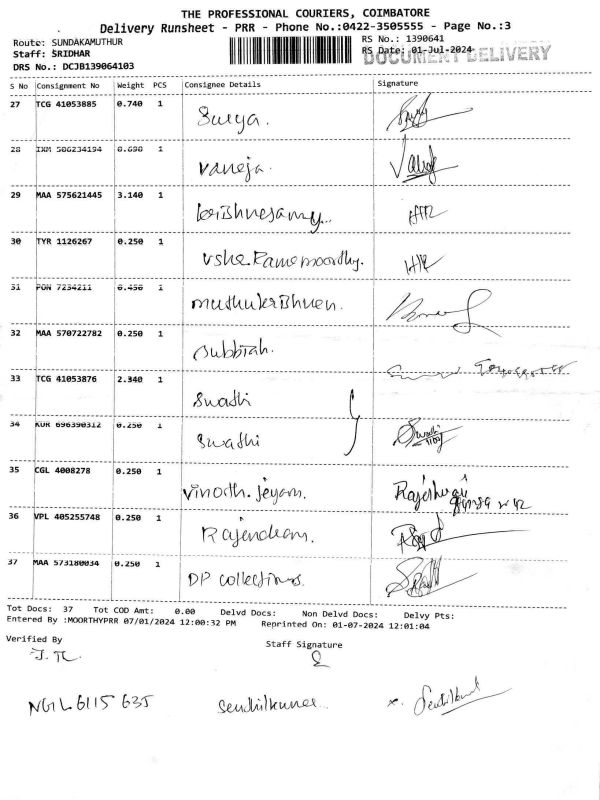 THE PROFESSIONAL COURIERS, COIMBATORE
Delivery Runsheet - PRR - Phone No.:0422-3505555 - Page No.:3
Route: SUNDAKAMUTHUR
RS No.: 1390641
Staff: SRIDHAR
RS Date: 01-Jul-2024
DOCUMENT DELIVERY
DRS No.: DCJB139064103
S No Consignment No Weight PCS Consignee Details Signature
27 TCG 41053885 0.740 1 Surya.
28 IXM 586234194 0.690 1 vaneja.
29 MAA 575621445 3.140 1 krishnesamy..
30 TYR 1126267 0.250 1 usha Ramamoorthy.
31 PON 7234211 0.450 1 muthukrishnen.
32 MAA 570722782 0.250 1 subbiah.
33 TCG 41053876 2.340 1 swathi
34 KUR 696390312 0.250 1 swathi
35 CGL 4008278 0.250 1 vinoth. jeyam.
36 VPL 405255748 0.250 1 Rajendean.
37 MAA 573180034 0.250 1 DP collections.
Tot Docs: 37 Tot COD Amt: 0.00 Delvd Docs: Non Delvd Docs: Delvy Pts:
Entered By :MOORTHYPRR 07/01/2024 12:00:32 PM Reprinted On: 01-07-2024 12:01:04
Verified By
Staff Signature
NGIL 6115 635 Sendhilkumar...